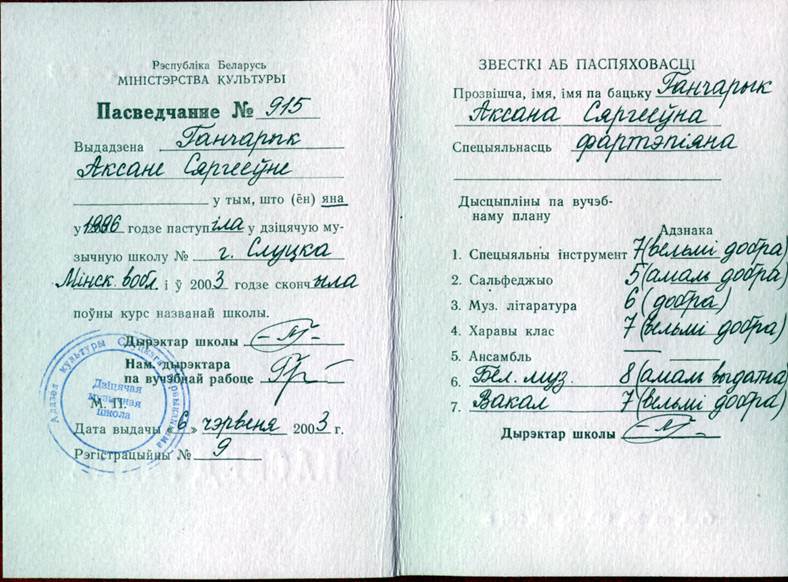 Рэспубліка Беларусь
МІНІСТЭРСТВА КУЛЬТУРЫ
Пасведчание № 915
Выдадзена Ганчарык
Аксане Сяргееўне
у тым, што (ён) яна
у 1996 годзе паступіла у дзіцячую му-
зычную школу № г. Слуцка
Мінск. вобл. і ў 2003 годзе скончыла
поўны курс названай школы.
Дырэктар школы
Нам. дырэктара
па вучэбнай рабоце
М. П.
Дзіцячая
музычная
школа
Аддзел культуры
Дата выдачы «6» чэрвеня 2003 г.
Рэгістрацыйны № 9
ЗВЕСТКІ АБ ПАСПЯХОВАСЦІ
Прозвішча, імя, імя па бацьку Ганчарык
Аксана Сяргееўна
Спецыяльнасць фартэпіяна
Дысцыпліны па вучэб-
наму плану
Адзнака
1. Спецыяльны інструмент 7 (вельмі добра)
2. Сальфеджыо 5 (амаль добра)
3. Муз. літаратура 6 (добра)
4. Харавы клас 7 (вельмі добра)
5. Ансамбль — —
6. Бел. муз. 8 (амаль выдатна)
7. Вакал 7 (вельмі добра)
Дырэктар школы